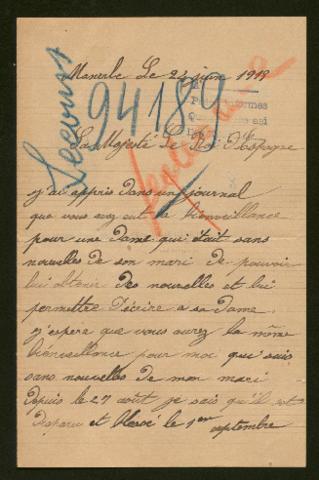 Manerbe Le 24 juin 1915
Lecourt
94189
Sa Majesté Le Roi D'Espagne
j'ai appris dans un journal
que vous avez eut la bienveillance
pour une Dame qui était sans
nouvelles de son mari de pouvoir
lui obtenir des nouvelles et lui
permettre D'écrire a sa Dame.
j'espère que vous aurez la même
bienveillance pour moi qui suis
sans nouvelles de mon mari
depuis le 27 août je sais qu'il est
Disparu et blessé le 1er septembre